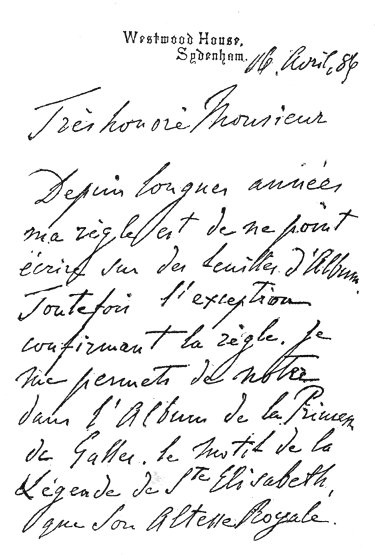 Westwood House,
Sydenham.
16 Avril, 86
Très honoré Monsieur
Depuis longues années
ma règle est de ne point
écrire sur des feuilles d'Album.
Toutefois l'exception
confirmant la règle, je
me permets de noter
dans l'Album de la Princesse
de Galles, le motif de la
Légende de Ste Elisabeth,
que Son Altesse Royale.